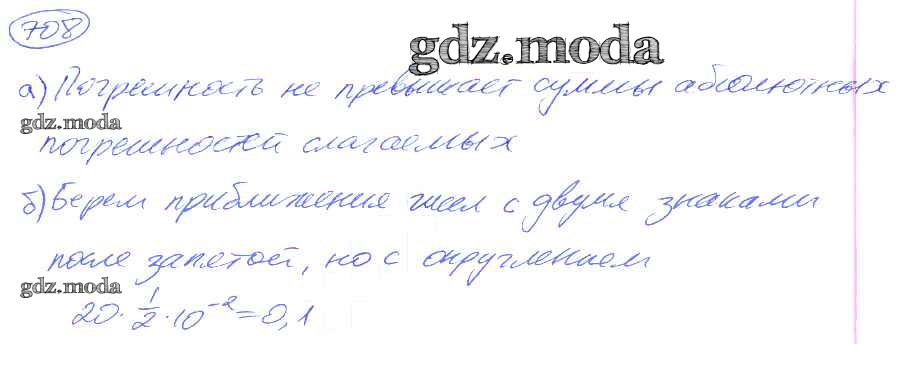 708
gdz.moda
а) Погрешность не превышает суммы абсолютных
gdz.moda
погрешностей слагаемых
б) Берем приближения чисел с двумя знаками
после запятой, но с округлением
gdz.moda
20·1/2·10⁻²=0,1